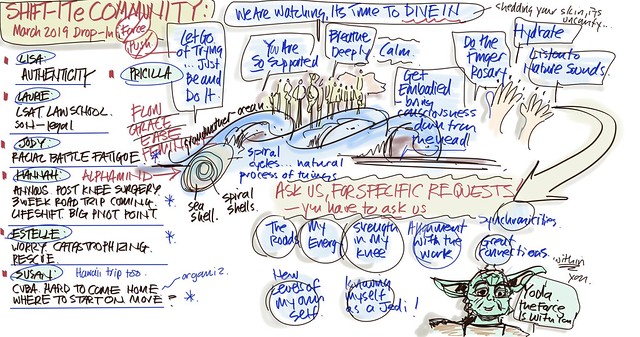 SHIFT-ITe COMMUNITY:
March 2019 Drop-In
Force
Push
LISA
AUTHENTICITY
PRICILLA
LAURIE
LSAT LAW SCHOOL.
SOW - legal
JODY
RACIAL BATTLE FATIGUE
HANNAH
ALPHAMIND
ANXIOUS. POST KNEE SURGERY
3 WEEK ROAD TRIP COMING.
LIFESHIFT. BIG PIVOT POINT.
ESTELLE
WORRY. CATASTROPHIZING.
RESCUE.
SUSAN
Hawaii trip too.
organiz.
CUBA. HARD TO COME HOME
WHERE TO START ON MOVE =
FLOW
GRACE
EASE
FEMININ
We Are Watching, Its Time To DIVE IN
shedding your skin, its
uncanny...
Let Go
of Trying
... Just
Be and
Do It
You Are
So Supported
Breathe
Deeply
Calm.
Get
Embodied
bring
consciousness
down from
the head!
Do the
Finger
Rosary
Hydrate
Listen to
Nature Sounds.
grandmother ocean
sea
shell.
spiral
shells.
spiral
cycles... natural
process of things
ASK US, FOR SPECIFIC REQUESTS
— you have to ask us
The
Roads
My
Energy
Strength
in my
Knee
Alignment
with the
work
synchronicities.
Great
connections.
New
Levels of
my own
self.
Knowing
myself
as a Jedi!
within
you.
Yoda.
the Force
Is With You!